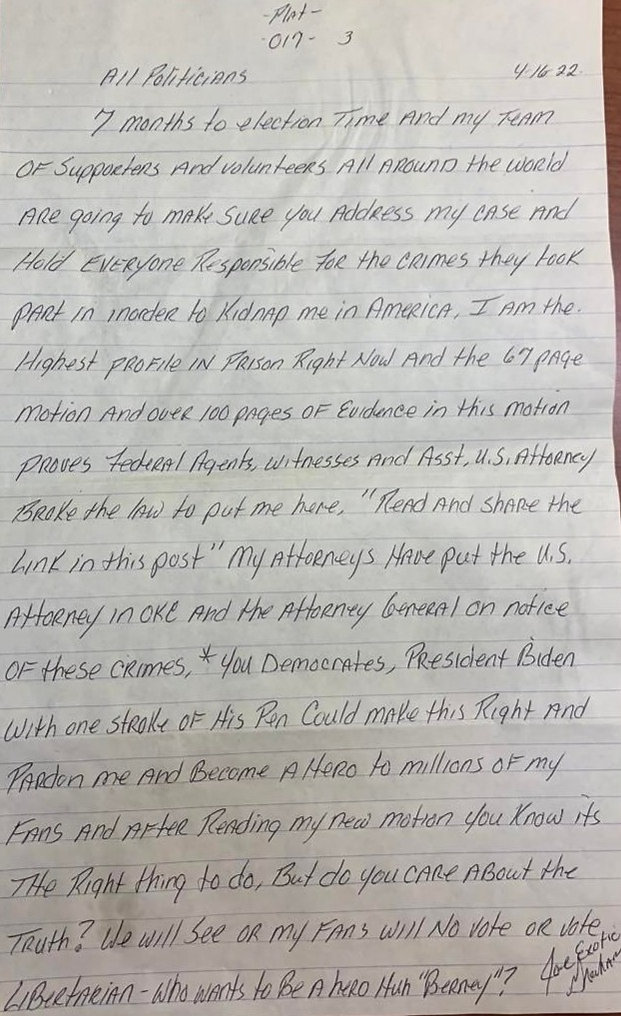 -Plat-
-017- 3
All Politicians 4-16-22.
7 months to election Time And my Team
OF Supporters And volunteers All Around the world
Are going to make sure you Address my case And
Hold Everyone Responsible For the crimes they took
part in inorder to Kidnap me in America, I Am the.
Highest Profile IN Prison Right Now And the 67 page
motion And over 100 pages OF Evidence in this motion
proves Federal Agents, witnesses And Asst, U.S. Attorney
Broke the law to put me here, "Read And share the
Link in this post" My Attorneys Have put the U.S.
Attorney in OKC And the Attorney General on notice
OF these crimes, * You Democrates, President Biden
With one stroke OF His Pen Could make this Right And
Pardon me And Become A Hero to millions OF my
Fans And After Reading my new motion you Know its
The Right thing to do, But do you care About the
Truth? We will see or my Fans will No vote or vote
Libertarian - Who wants to Be A hero Huh "Berney"?
Joe Exotic